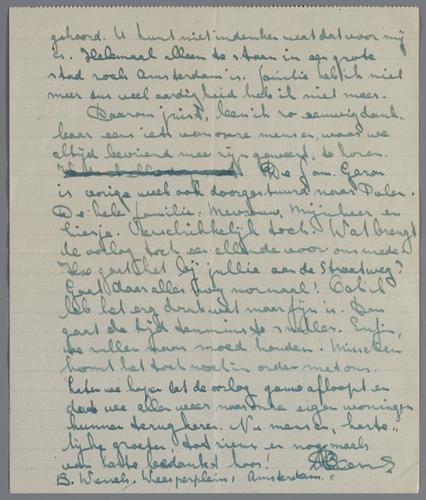 gehoord. U kunt niet indenken wat dat voor mij
is. Helemaal alleen te staan in een grote
stad zoals Amsterdam is. familie heb ik niet
meer dus veel aardigheid heb ik niet meer.
Daarom juist, ben ik zo eeuwig dank-
baar eens iets van onze mensen, waar we
altijd bevriend mee zijn geweest, te horen.
De fam.
is vorige week ook doorgestuurd naar Polen.
De hele familie, Mevrouw, Mijnheer, en
Verschrikkelijk toch. Wat brengt
de oorlog toch een ellende voor ons mede.
Hoe gaat het bij jullie aan de Straatweg?
Gaat daar alles nog normaal? Ook ik
heb het erg druk wat maar fijn is. Dan
gaat de tijd tenminste sneller. Enfin,
we zullen maar moed houden. Misschien
komt het toch nog in orde met ons.
Laten we hopen dat de oorlog gauw afloopt en
dat we allen weer naar onze eigen woningen
kunnen terugkeren. Nu mensen, harte-
lijke groeten, tot ziens en nogmaals
van harte bedankt hoor!
Weesperplein, Amsterdam.